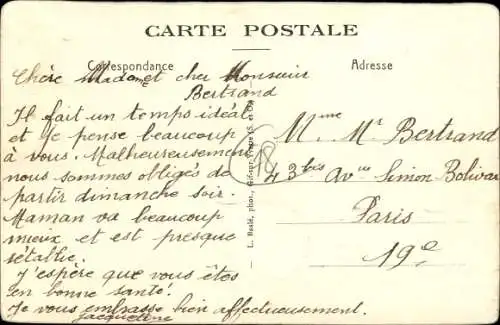 CARTE POSTALE
Correspondance
Adresse
Chère Madame et cher Monsieur
Bertrand
Il fait un temps idéal
et je pense beaucoup
à vous. Malheureusement
nous sommes obligés de
partir dimanche soir.
Maman va beaucoup
mieux et est presque
rétablie.
J'espère que vous êtes
en bonne santé.
Je vous embrasse bien affectueusement.
Jacqueline
L. Réalé, phot.,
Mme Mr Bertrand
43bis Avue Simon Bolivar
Paris
19e